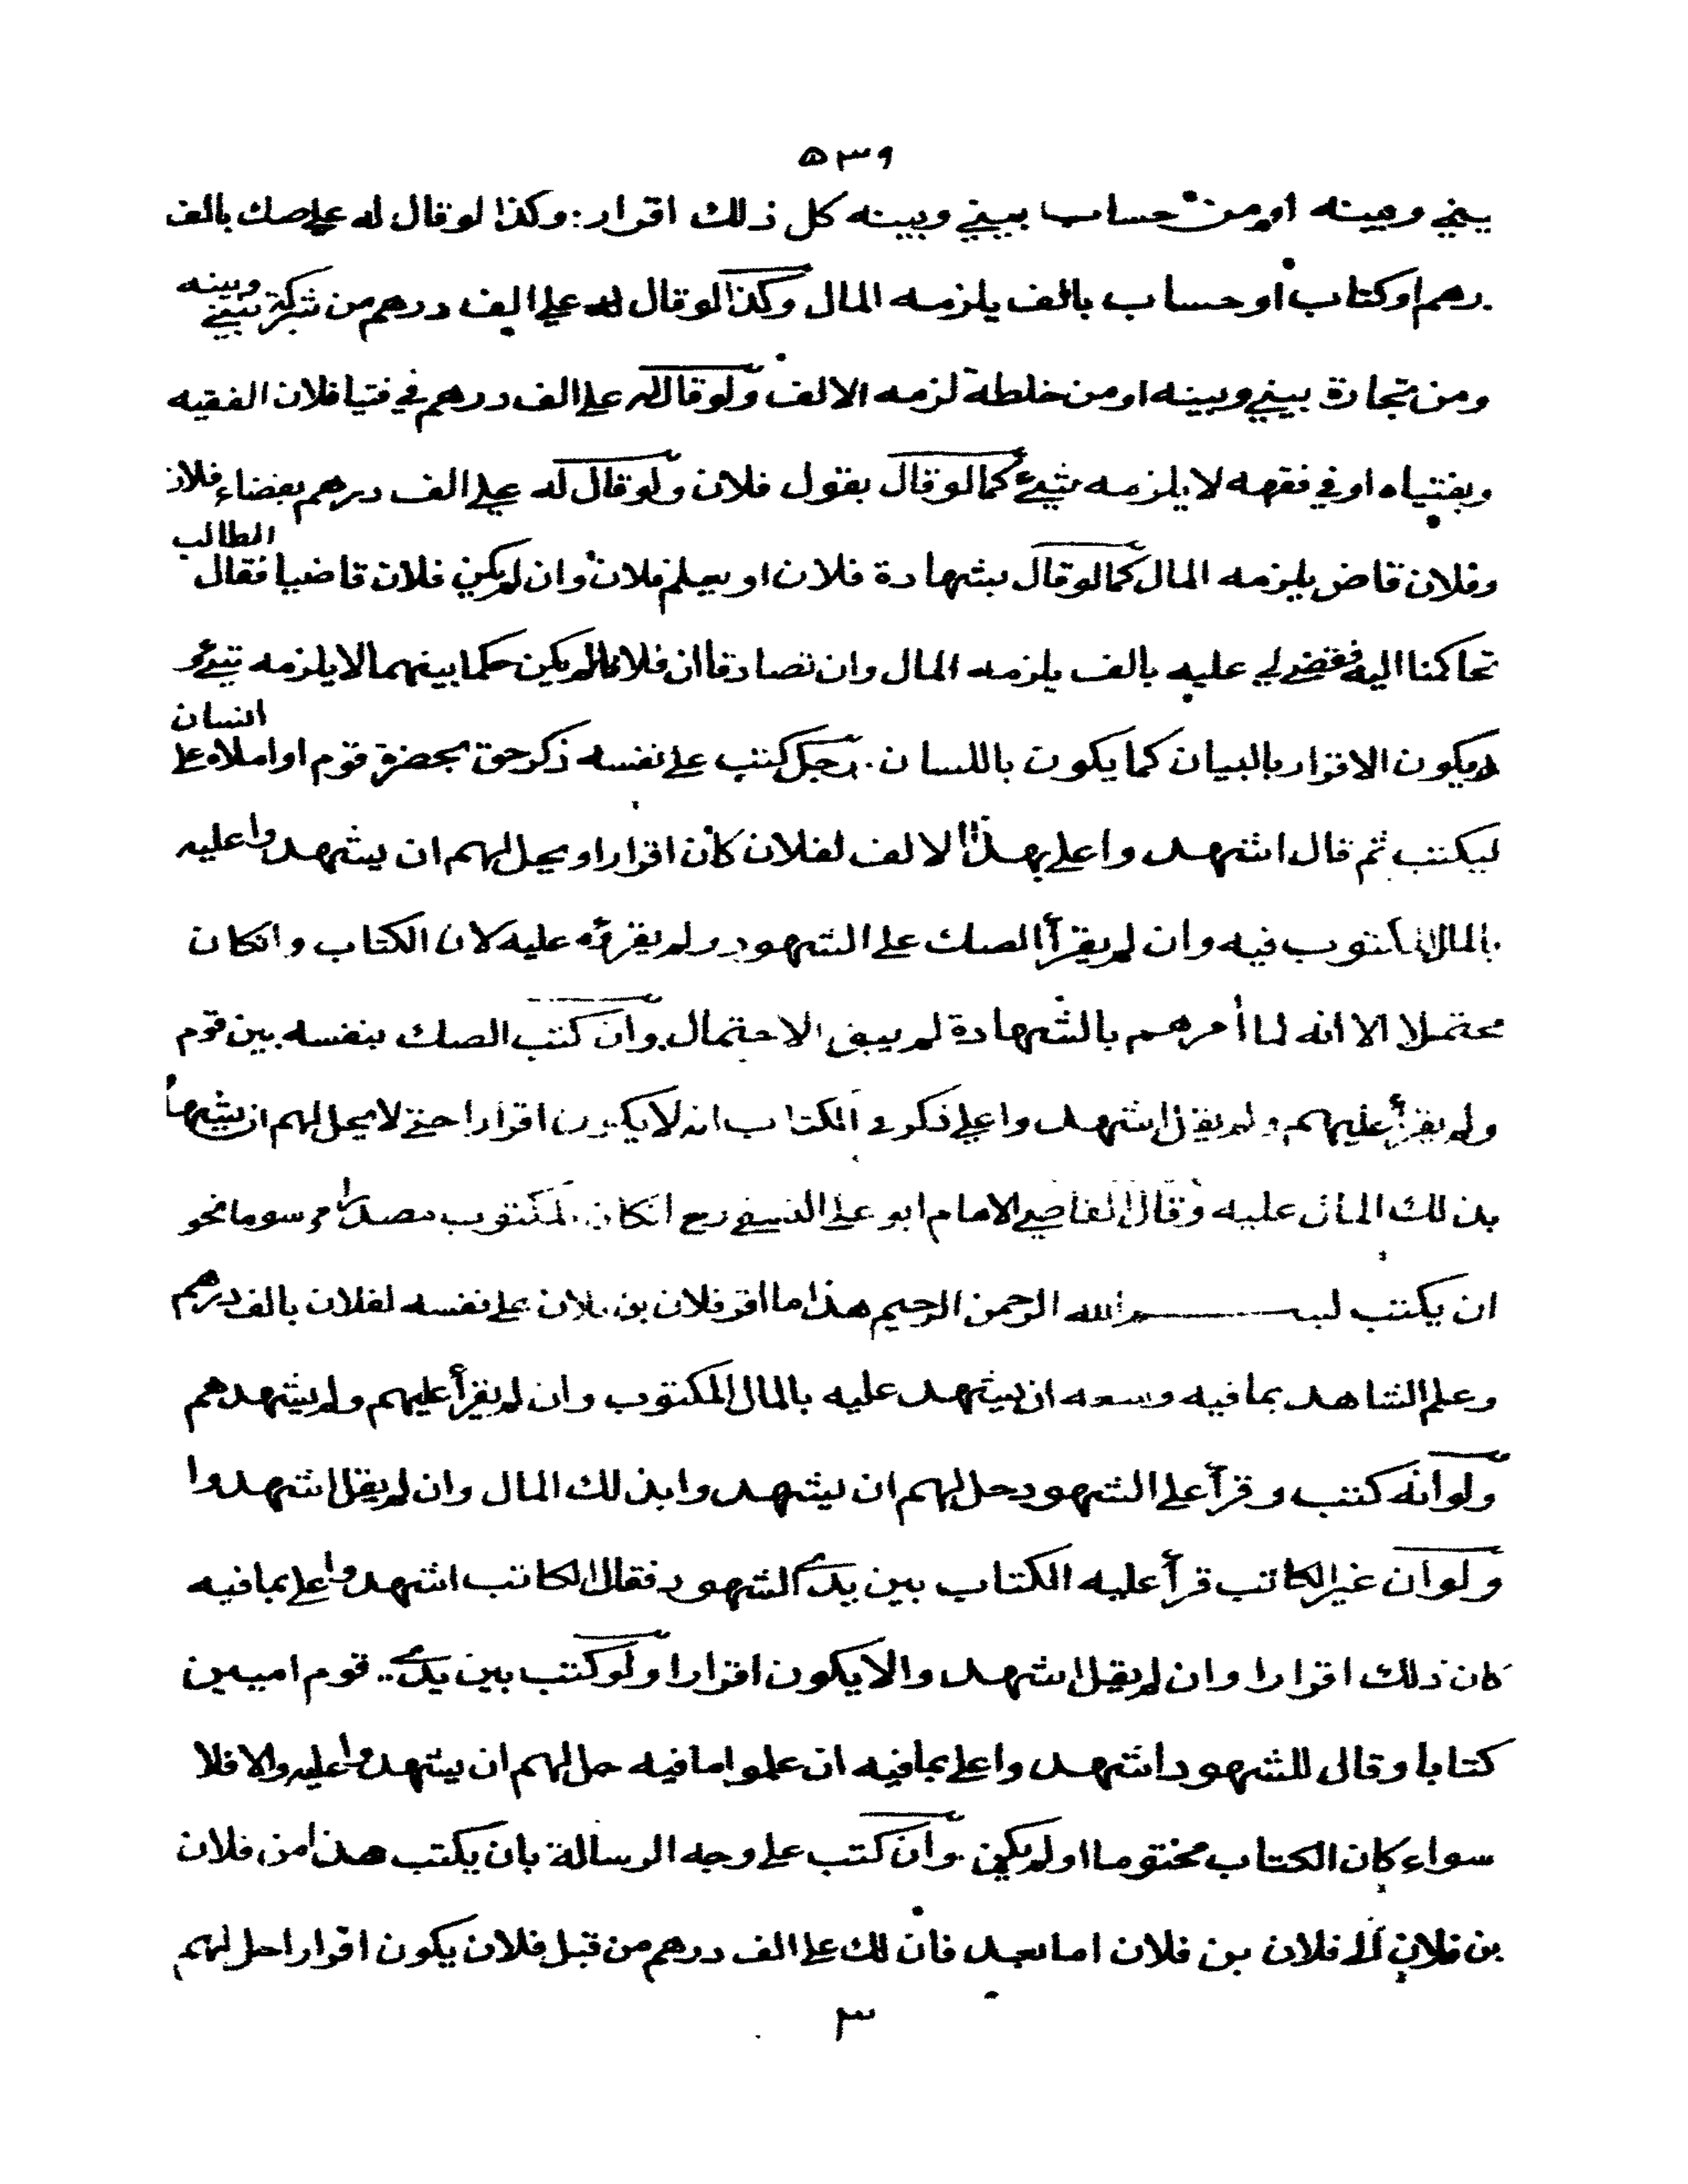 ٥٣٩
بيني وبينه او من حساب بيني وبينه كل ذلك اقرار : وكذا لو قال له علي صك بالف
درهم او كتاب او حساب بالف يلزمه المال وكذا لو قال له علي الف درهم من شركة بيني وبينه
ومن تجارة بيني وبينه او من خلطة لزمه الالف ولو قال له علي الف درهم في فتيا فلان الفقيه
وبفتياه او في فقهه لا يلزمه شيئ كما لو قال بقول فلان ولو قال له علي الف درهم بقضاء فلان
وفلان قاض يلزمه المال كما لو قال بشهادة فلان او بعلم فلان وان لم يكن فلان قاضيا فقال الطالب
تحاكمنا اليه فقضى لي عليه بالف يلزمه المال وان تصادقا ان فلانا لم يكن حكما بينهما لا يلزمه شيئ و
يكون الاقرار بالبيان كما يكون باللسان . رجل كتب على نفسه ذكر حق بحضرة قوم او املاه على انسان
ليكتب ثم قال اشهدوا علي بهذا الالف لفلان كان اقرارا ويحل لهم ان يشهدوا عليه
بالمال المكتوب فيه وان لم يقرأ الصك على الشهود ولم يقرؤه عليه لان الكتاب وانكان
محتملا الا انه لما أمرهم بالشهادة لم يبق الاحتمال وان كتب الصك بنفسه بين قوم
ولم يقرأ عليهم ولم يقل اشهدوا علي ذكر في الكتاب انه لا يكون اقرارا حتى لا يحل لهم ان يشهدوا
بذلك المال عليه وقال القاضي الامام ابو علي النسفي رح انكان المكتوب مصدرا مرسوما نحو
ان يكتب بسم الله الرحمن الرحيم هذا ما اقر فلان بن فلان على نفسه لفلان بالف درهم
وعلم الشاهد بما فيه وسعه ان يشهد عليه بالمال المكتوب وان لم يقرأ عليهم ولم يشهدهم
ولو انه كتب وقرأ على الشهود حل لهم ان يشهدوا بذلك المال وان لم يقل اشهدوا
ولو ان غير الكاتب قرأ عليه الكتاب بين يدي الشهود فقال الكاتب اشهدوا علي بما فيه
كان ذلك اقرارا وان لم يقل اشهدوا لا يكون اقرارا ولو كتب بين يدي قوم اميين
كتابا وقال للشهود اشهدوا علي بما فيه ان علموا ما فيه حل لهم ان يشهدوا عليه والا فلا
سواء كان الكتاب مختوما او لم يكن وان كتب على وجه الرسالة بان يكتب هذا من فلان
بن فلان الى فلان بن فلان اما بعد فان لك علي الف درهم من قبل فلان يكون اقرارا حل لهم
٣